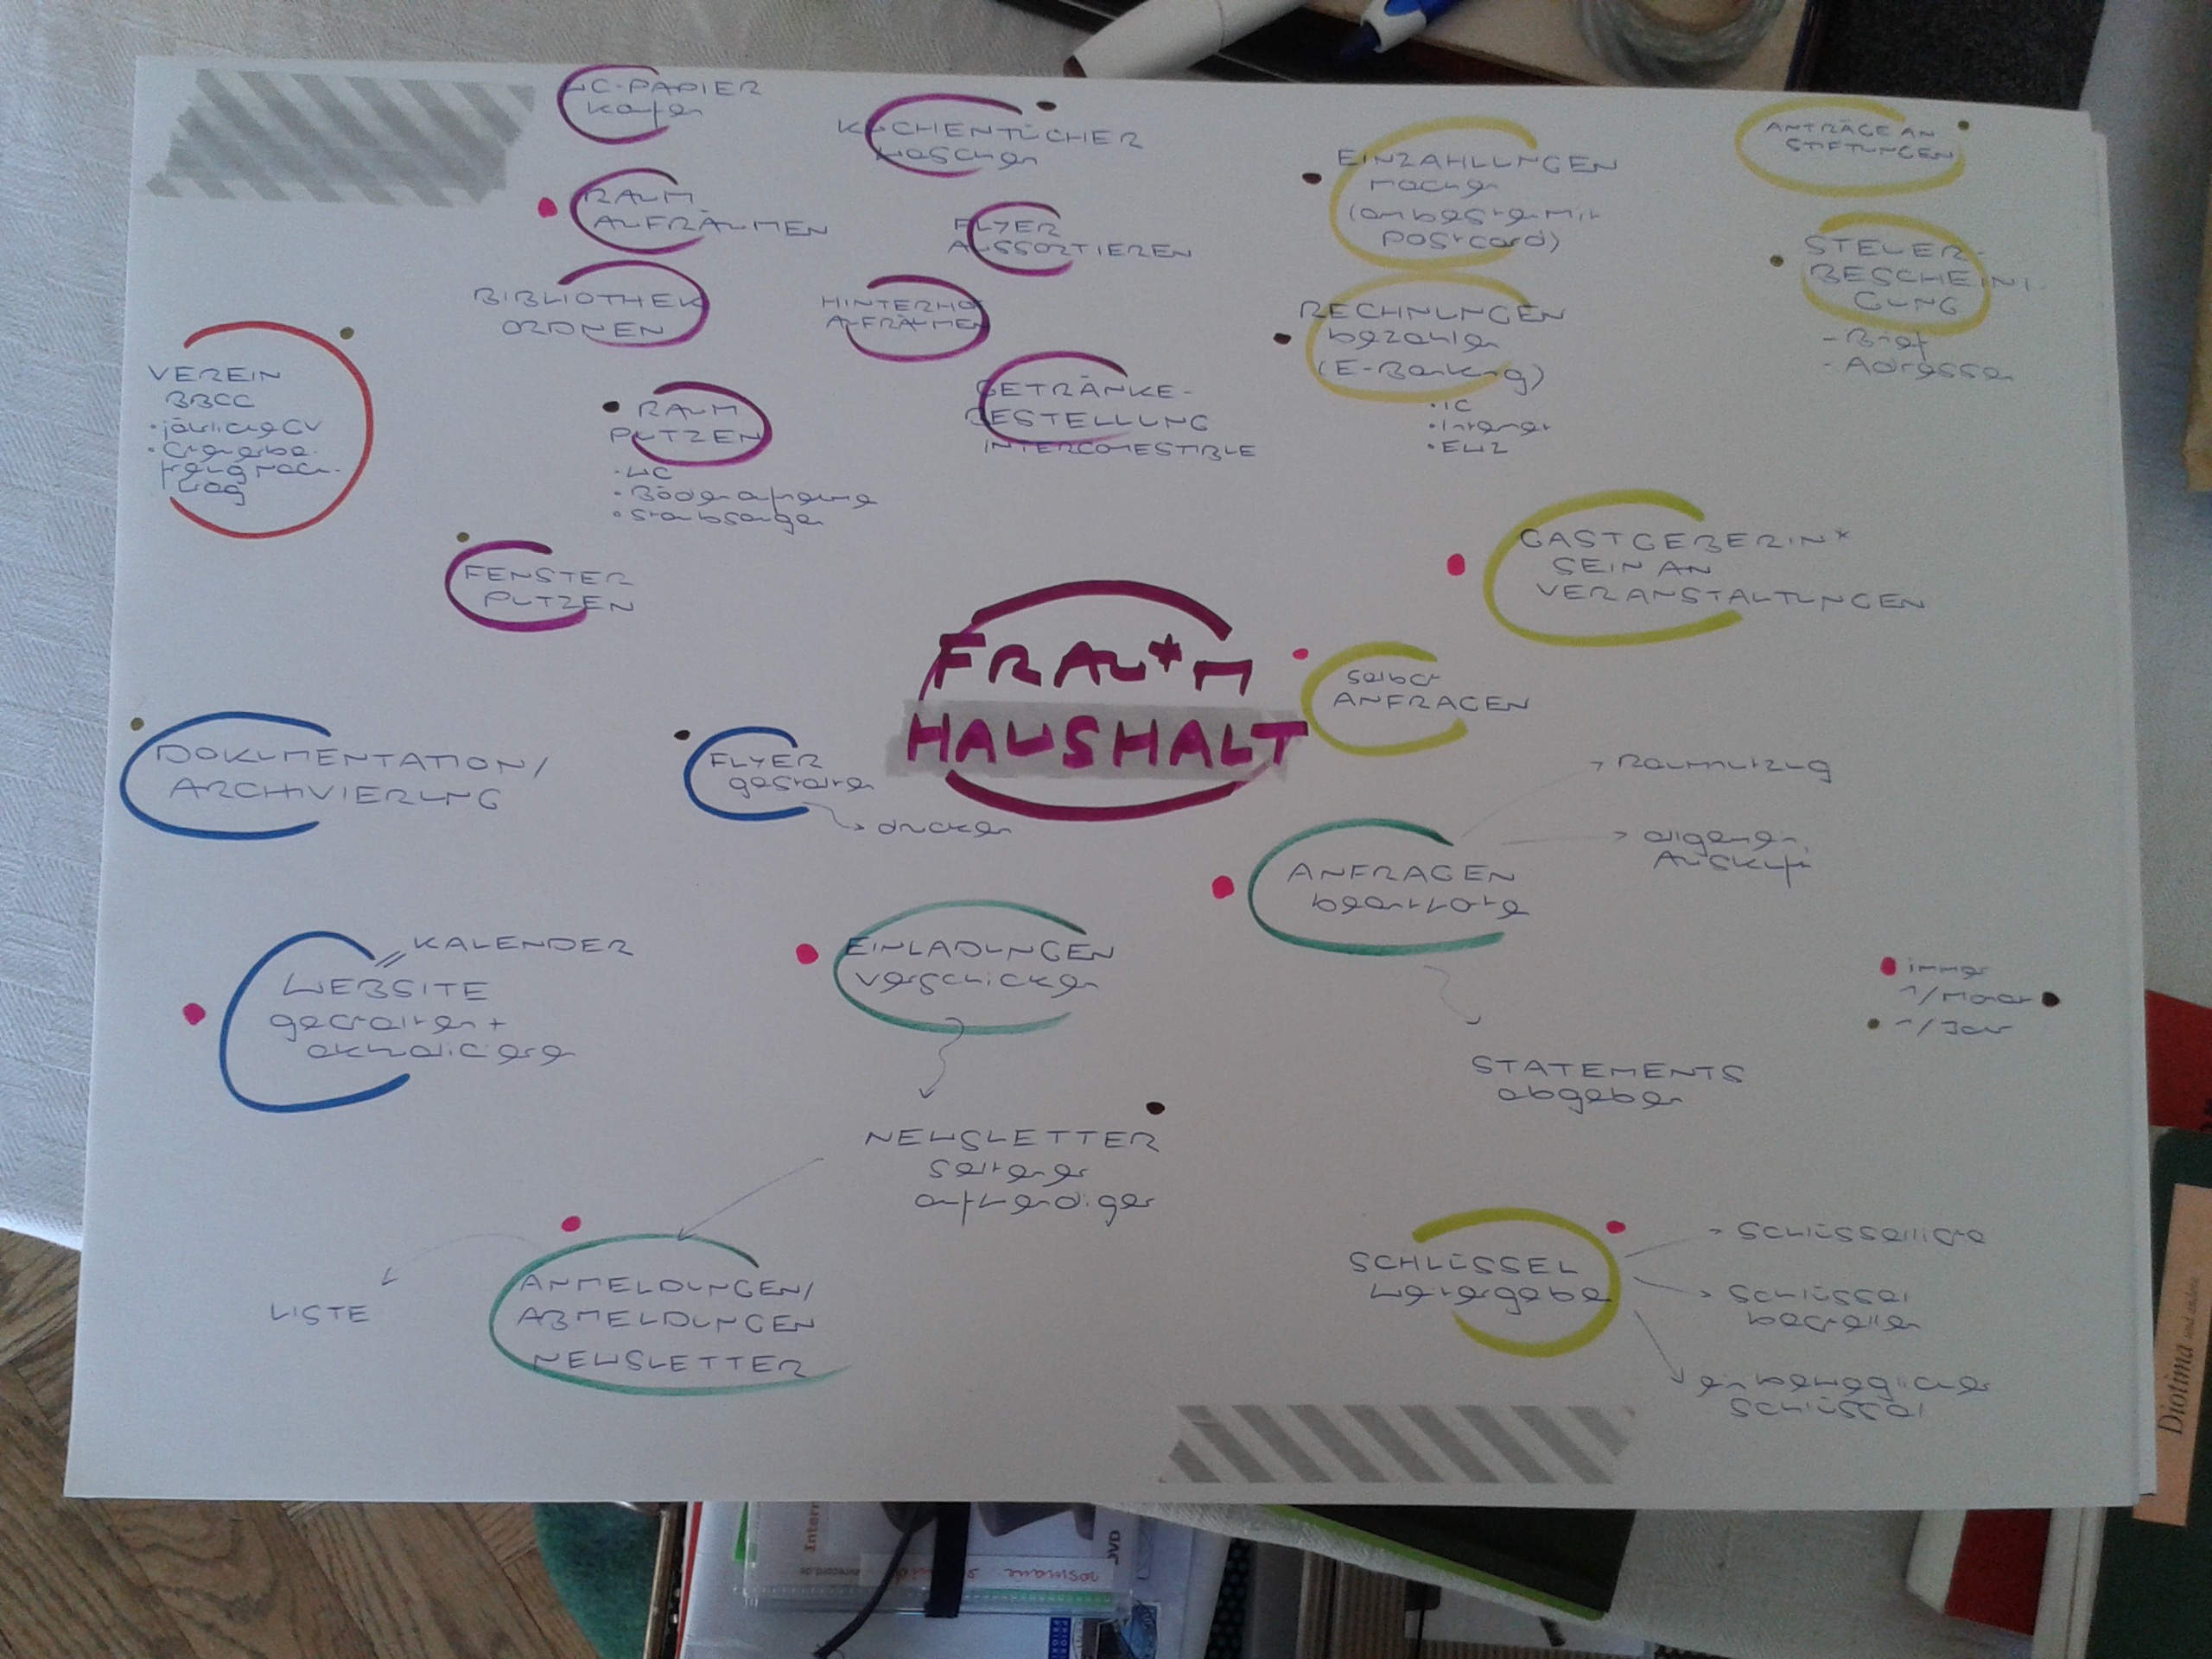 WC-PAPIER
kaufen
KÜCHENTÜCHER
waschen
RAUM
AUFRÄUMEN
FLYER
AUSSORTIEREN
BIBLIOTHEK
ORDNEN
HINTERHOF
AUFRÄUMEN
GETRÄNKE-
BESTELLUNG
INTERCOMESTIBLE
RAUM
PUTZEN
· WC
· Böden aufnehmen
· staubsaugen
FENSTER
PUTZEN
VEREIN
BBCC
· jährliche GV
EINZAHLUNGEN
machen
(am besten mit
Postcard)
RECHNUNGEN
bezahlen
(E-Banking)
· Internet
· EWZ
ANTRÄGE AN
STIFTUNGEN
STEUER-
BESCHEINI-
GUNG
- Brief
- Adressen
GASTGEBERIN*
SEIN AN
VERANSTALTUNGEN
FRAU*M
HAUSHALT
selbst
ANFRAGEN
DOKUMENTATION/
ARCHIVIERUNG
FLYER
gestalten
drucken
ANFRAGEN
beantworten
Raumnutzung
allgemein.
Auskunft
STATEMENTS
abgeben
KALENDER
WEBSITE
gestalten +
aktualisieren
EINLADUNGEN
verschicken
NEWSLETTER
seltener
aufwendiger
immer
1/Monat
1/Jahr
ANMELDUNGEN/
ABMELDUNGEN
NEWSLETTER
LISTE
SCHLÜSSEL
weitergeben
Schlüsselliste
Schlüssel
bestellen
ein beweglicher
Schlüssel
Diotima und andere
DVD